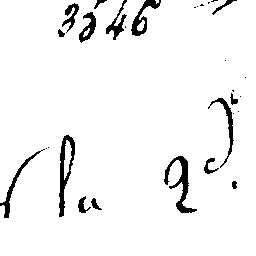 3546
la 2d.